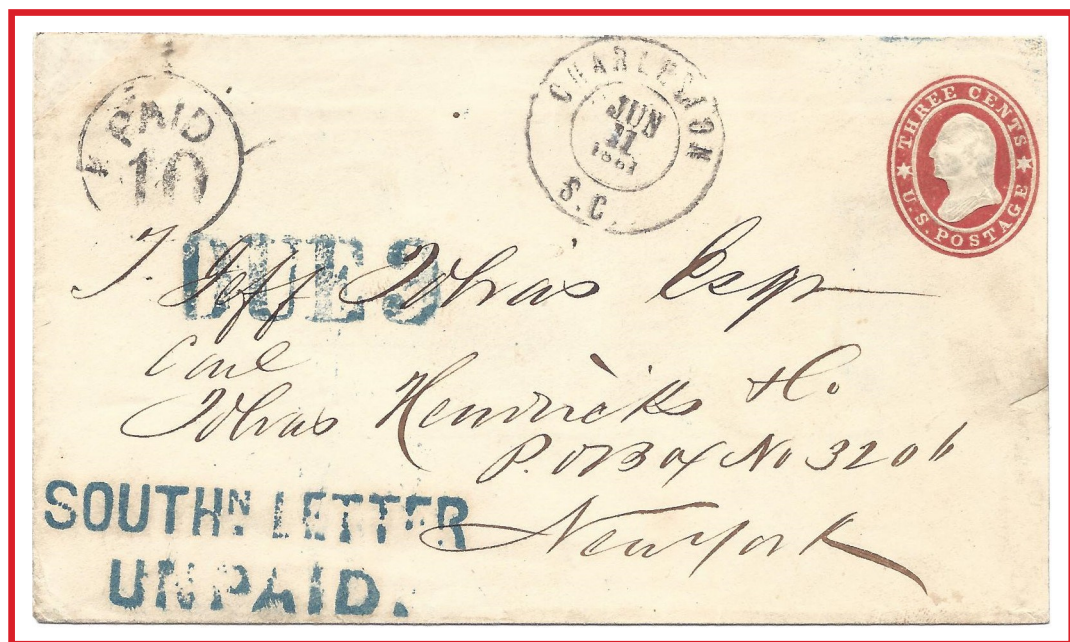 PAID
10
CHARLESTON
JUN
11
1861
S.C.
THREE CENTS
U.S. POSTAGE
DUE 3
T. Jeff Tobias Esqr
Care
Tobias Hendricks & Co
P.O Box No 3206
New York
SOUTHN. LETTER
UNPAID.